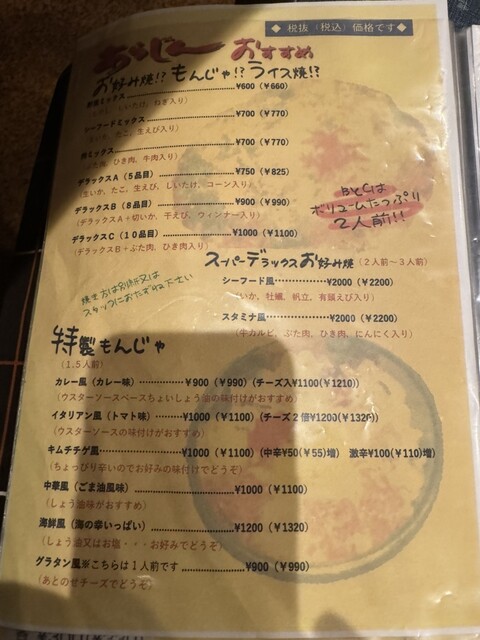 ◆ 税抜（税込）価格です◆
おすすめ
お好み焼!? もんじゃ!? ライス焼!?
ミックス……¥600（¥660）
しいたけ、ねぎ入り）
シーフードミックス……¥700（¥770）
たこ、生えび入り）
ミックス……¥700（¥770）
ぶた肉、ひき肉、牛肉入り）
デラックスA（5品目）……¥750（¥825）
（生いか、たこ、生えび、しいたけ、コーン入り）
デラックスB（8品目）……¥900（¥990）
（デラックスA＋切いか、干えび、ウィンナー入り）
デラックスC（10品目）……¥1000（¥1100）
（デラックスB＋ぶた肉、ひき肉入り）
BとCは
ボリュームたっぷり
2人前!!
焼き方は別紙又は
スタッフにおたずねください
スーパーデラックスお好み焼（2人前～3人前）
シーフード風……¥2000（¥2200）
（いか、牡蠣、帆立、有頭えび入り）
スタミナ風……¥2000（¥2200）
（牛カルビ、ぶた肉、ひき肉、にんにく入り）
特製もんじゃ
（1.5人前）
カレー風（カレー味）……¥900（¥990）（チーズ入¥1100(¥1210)）
（ウスターソースベースちょいしょう油の味付けがおすすめ）
イタリアン風（トマト味）……¥1000（¥1100）（チーズ2倍¥1200(¥1320)）
（ウスターソースの味付けがおすすめ）
キムチチゲ風……¥1000（¥1100）（中辛¥50(¥55)増　激辛¥100(¥110)増）
（ちょっぴり辛いのでお好みの味付けでどうぞ）
中華風（ごま油風味）……¥1000（¥1100）
（しょう油味がおすすめ）
海鮮風（海の幸いっぱい）……¥1200（¥1320）
（しょう油又はお塩・・・お好みでどうぞ）
グラタン風※こちらは1人前です……¥900（¥990）
（あとのせチーズでどうぞ）